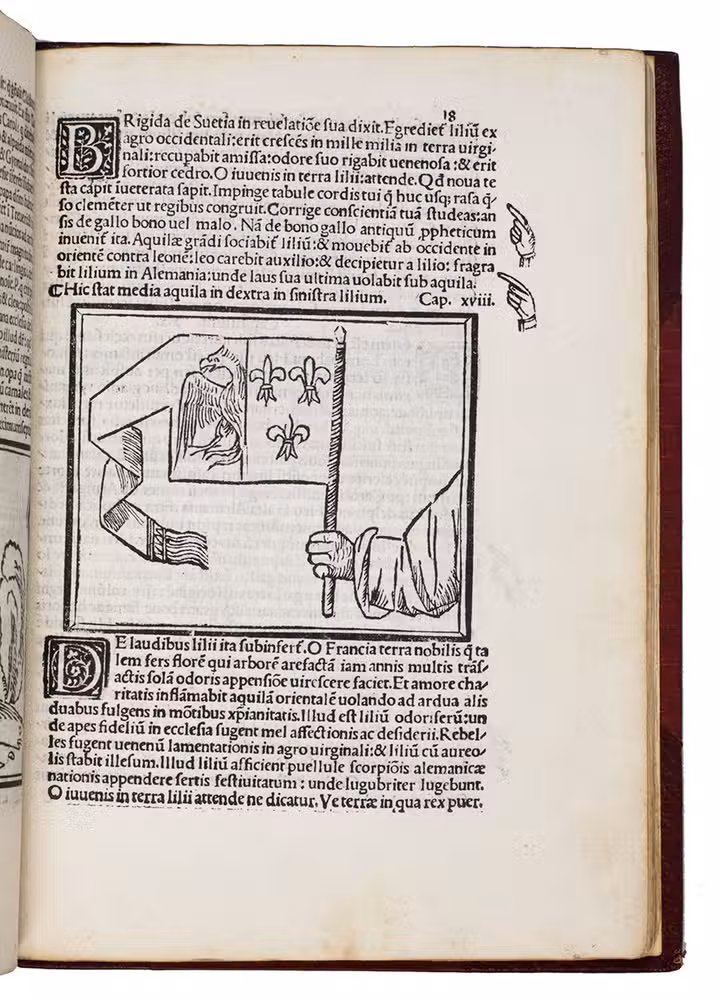 18
BRigida de Suetia in reuelatiõe sua dixit. Egrediet᷑ liliũ ex
agro occidentali: erit crescẽs in mille milia in terra uirgi⸗
nali: recupabit amissa: odore suo rigabit uenenosa: & erit
fortior cedro. O iuuenis in terra lilii: attende. Qđ noua te
sta capit iueterata sapit. Impinge tabule cordis tui q̃ huc usq; rasa q̃⸗
so clemẽter ut regibus congruit. Corrige conscientiã tuã studeas: an
sis de gallo bono uel malo. Nã de bono gallo antiquũ ppheticum
inuenit᷑ ita. Aquilæ grãdi sociabit᷑ liliũ: & mouebit᷑ ab occidente in
orientẽ contra leonẽ: leo carebit auxilio: & decipietur a lilio: fragra
bit lilium in Alemania: unde laus sua ultima uolabit sub aquila.
¶Hic stat media aquila in dextra in sinistra lilium. Cap. xviii.
DE laudibus lilii ita subinfert᷑. O Francia terra nobilis q̃ ta
lem fers florẽ qui arborẽ arefactã iam annis multis trãs⸗
actis solã odoris appensiõe uirescere faciet. Et amore cha⸗
ritatis inflãmabit aquilã orientalẽ uolando ad ardua alis
duabus fulgens in mõtibus xp̃ianitatis. Illud est liliũ odoriferũ: un
de apes fideliũ in ecclesia sugent mel affectionis ac desiderii. Rebel⸗
les fugent uenenũ lamentationis in agro uirginali: & liliũ cũ aureo⸗
lis stabit illesum. Illud liliũ afficient puellule scorpiõis alemanicæ
nationis appendere sertis festiuitatum: unde lugubriter lugebunt.
O iuuenis in terra lilii attende ne dicatur. Ve terræ in qua rex puer.